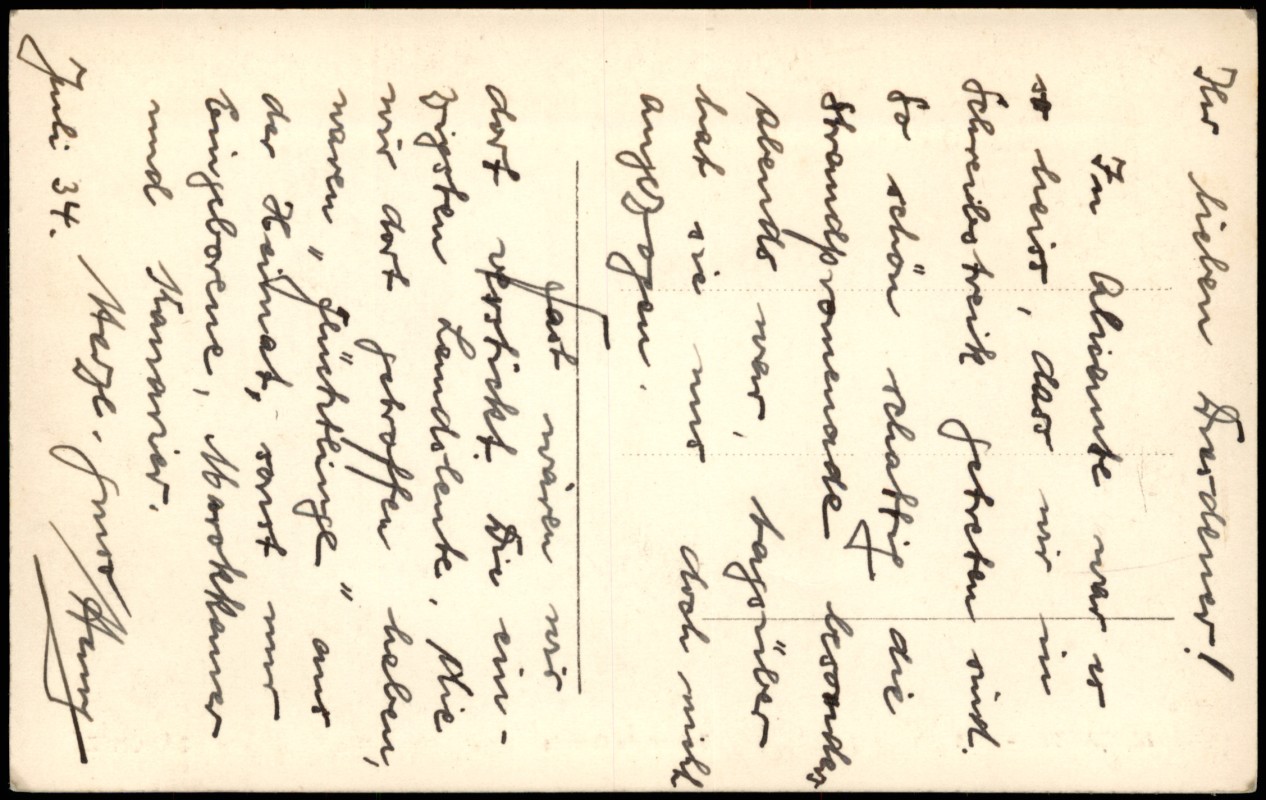 Ihr lieben Dresdener!
In Alicante war es
so heiss, dass wir in
Schreibstreik getreten sind.
So schön schattig die
Strandpromenade besonders
abends war, tagsüber
hat sie uns doch nicht
angezogen.
Fast wären wir
dort erstickt. Die ein-
zigsten Landsleute, die
wir dort getroffen haben,
waren „Flüchtlinge" aus
der Heimat, sonst nur
Eingeborene, Marokkaner
und Kanarier.
Herzl. Gruss
Juli 34.